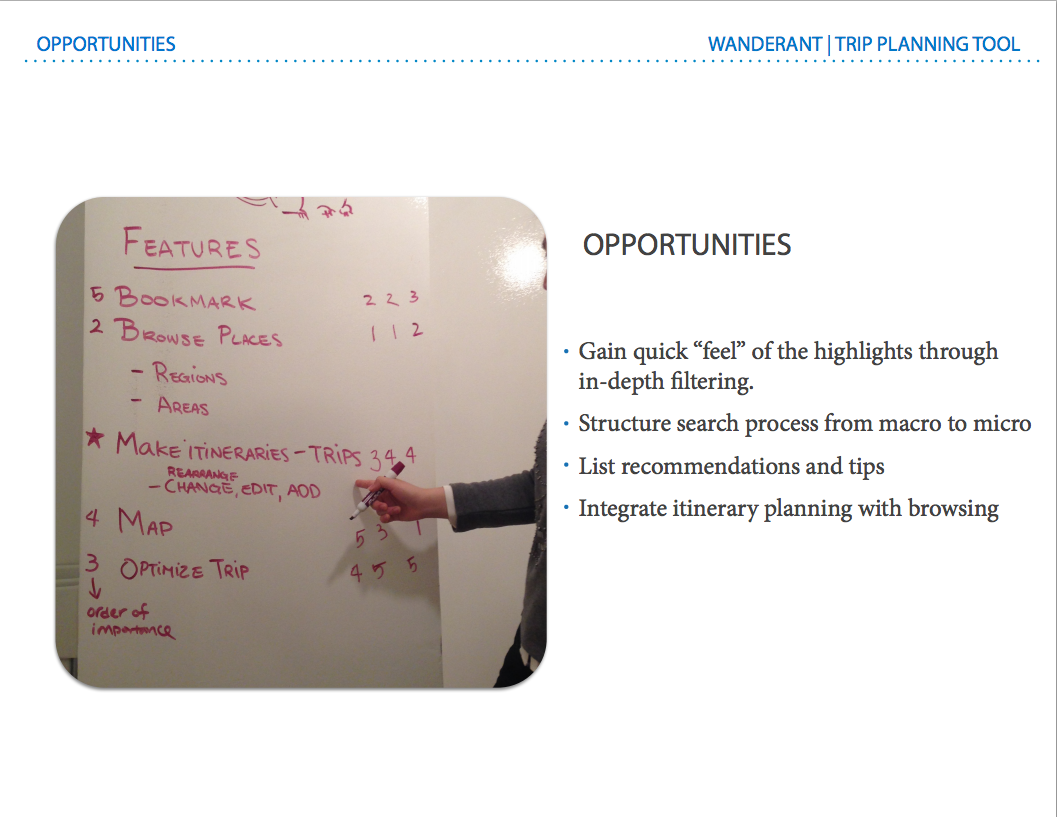 OPPORTUNITIES
WANDERANT | TRIP PLANNING TOOL
FEATURES
5 BOOKMARK 2 2 3
2 BROWSE PLACES 1 1 2
- REGIONS
- AREAS
★ MAKE ITINERARIES - TRIPS 3 4 4
REARRANGE
- CHANGE, EDIT, ADD
4 MAP 5 3 1
3 OPTIMIZE TRIP 4 5 5
↓
order of
importance
OPPORTUNITIES
• Gain quick “feel” of the highlights through
in-depth filtering.
• Structure search process from macro to micro
• List recommendations and tips
• Integrate itinerary planning with browsing